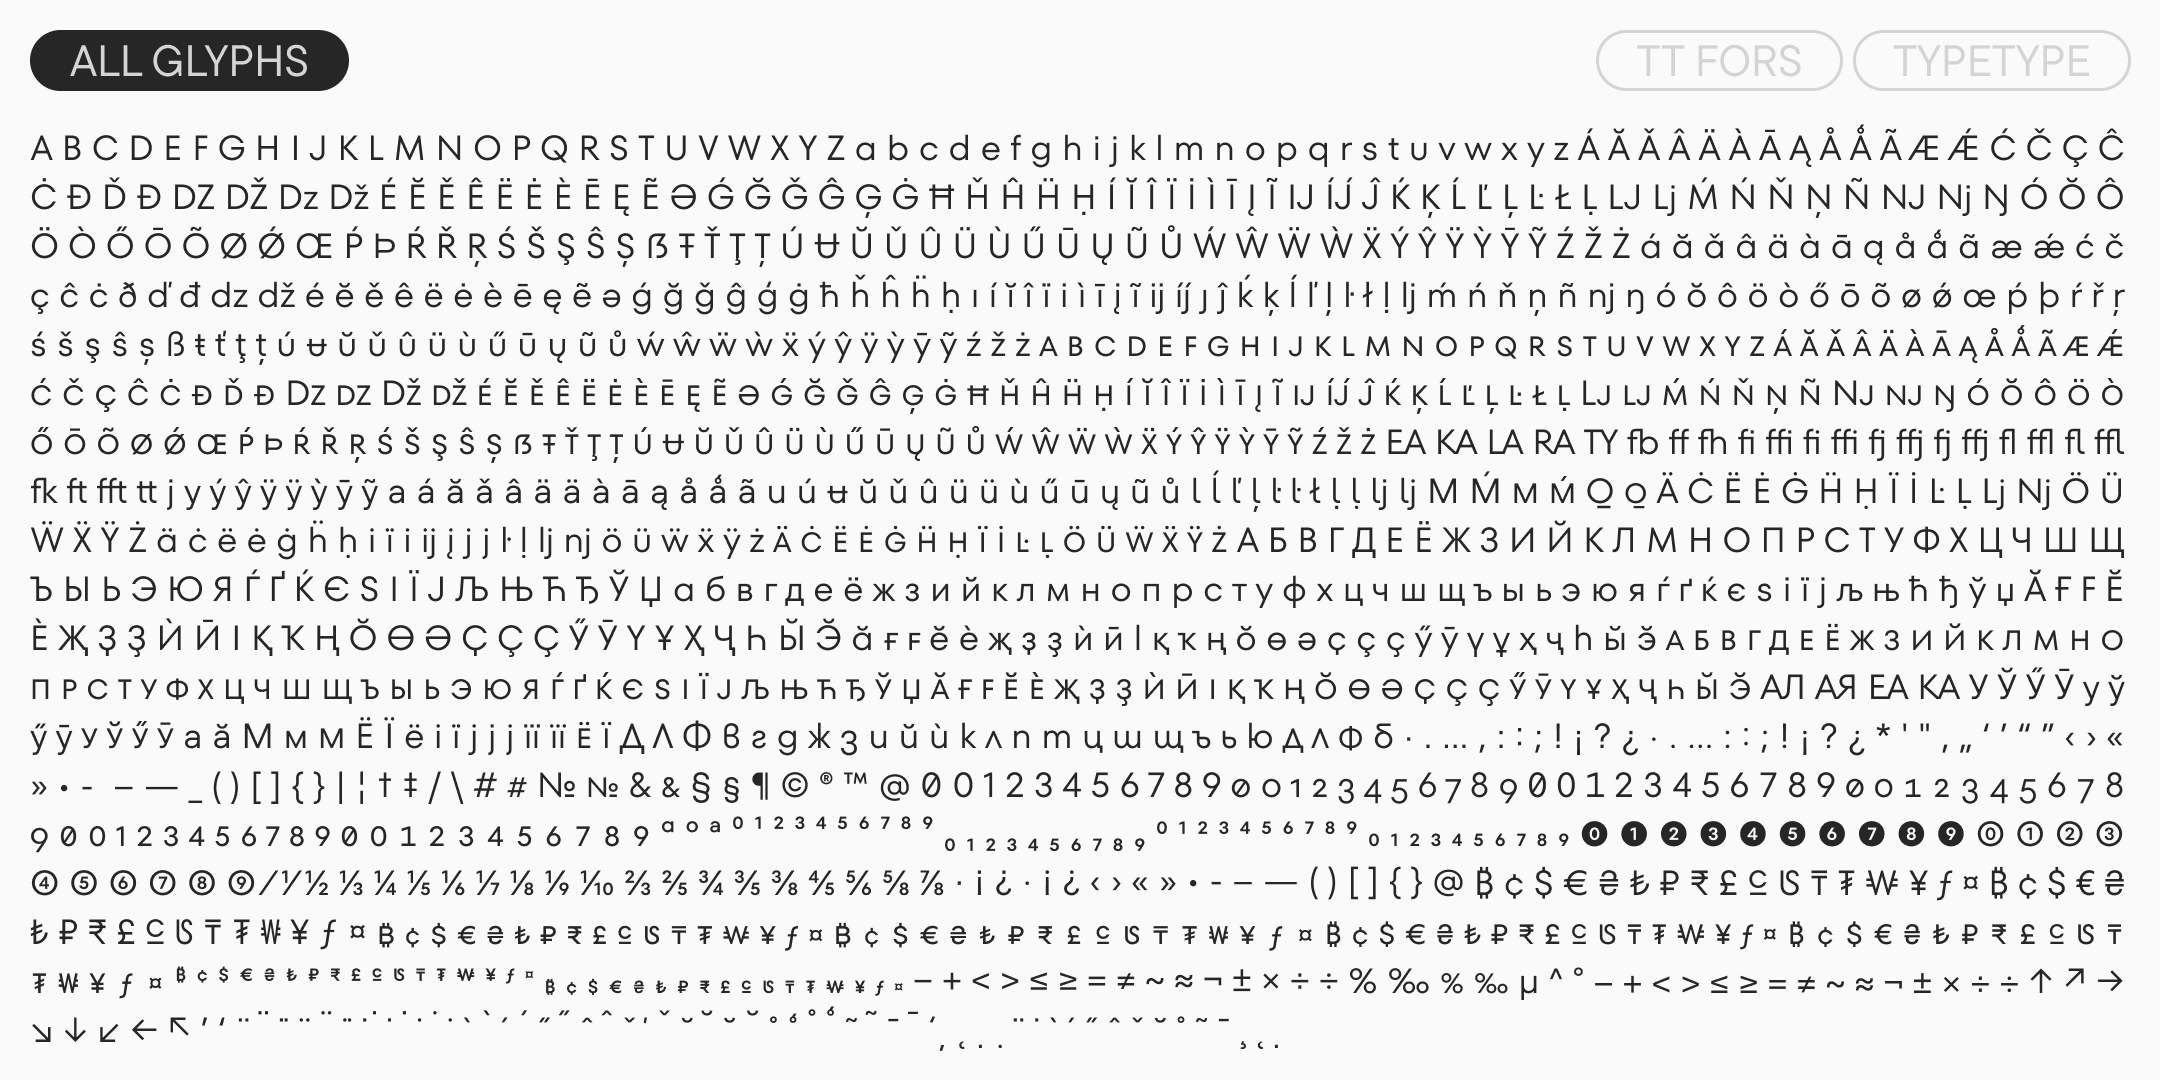 ALL GLYPHS TT FORS TYPETYPE
A B C D E F G H I J K L M N O P Q R S T U V W X Y Z a b c d e f g h i j k l m n o p q r s t u v w x y z Á Ă Ǎ Â Ä À Ā Ą Å Ǻ Ã Æ Ǽ Ć Č Ç Ĉ
Ċ Ð Ď Đ DZ DŽ Dz Dž É Ĕ Ě Ê Ë Ė È Ē Ę Ẽ Ə Ǵ Ğ Ǧ Ĝ Ģ Ġ Ħ Ȟ Ĥ Ḧ Ḥ Í Ĭ Î Ï İ Ì Ī Į Ĩ IJ ÍJ́ Ĵ Ḱ Ķ Ĺ Ľ Ļ Ŀ Ł Ḷ LJ Lj Ḿ Ń Ň Ņ Ñ NJ Nj Ŋ Ó Ŏ Ô
Ö Ò Ő Ō Õ Ø Ǿ Œ Ṕ Þ Ŕ Ř Ŗ Ś Š Ş Ŝ Ș ẞ Ŧ Ť Ţ Ț Ú Ʉ Ŭ Ǔ Û Ü Ù Ű Ū Ų Ũ Ů Ẃ Ŵ Ẅ Ẁ Ẍ Ý Ŷ Ÿ Ỳ Ȳ Ỹ Ź Ž Ż á ă ǎ â ä à ā ą å ǻ ã æ ǽ ć č
ç ĉ ċ ð ď đ dz dž é ĕ ě ê ë ė è ē ę ẽ ə ǵ ğ ǧ ĝ ģ ġ ħ ȟ ĥ ḧ ḥ ı í ĭ î ï i ì ī į ĩ ij íj́ ȷ ĵ ḱ ķ ĺ ľ ļ ŀ ł ḷ lj ḿ ń ň ņ ñ nj ŋ ó ŏ ô ö ò ő ō õ ø ǿ œ ṕ þ ŕ ř ŗ
ś š ş ŝ ș ß ŧ ť ţ ț ú ʉ ŭ ǔ û ü ù ű ū ų ũ ů ẃ ŵ ẅ ẁ ẍ ý ŷ ÿ ỳ ȳ ỹ ź ž ż A B C D E F G H I J K L M N O P Q R S T U V W X Y Z Á Ă Ǎ Â Ä À Ā Ą Å Ǻ Ã Æ Ǽ
Ć Č Ç Ĉ Ċ Ð Ď Đ Dz DZ Dž DŽ É Ĕ Ě Ê Ë Ė È Ē Ę Ẽ Ə Ǵ Ğ Ǧ Ĝ Ģ Ġ Ħ Ȟ Ĥ Ḧ Ḥ Í Ĭ Î Ï İ Ì Ī Į Ĩ IJ ÍJ́ Ĵ Ḱ Ķ Ĺ Ľ Ļ Ŀ Ł Ḷ Lj LJ Ḿ Ń Ň Ņ Ñ Nj NJ Ŋ Ó Ŏ Ô Ö Ò
Ő Ō Õ Ø Ǿ Œ Ṕ Þ Ŕ Ř Ŗ Ś Š Ş Ŝ Ș ẞ Ŧ Ť Ţ Ț Ú Ʉ Ŭ Ǔ Û Ü Ù Ű Ū Ų Ũ Ů Ẃ Ŵ Ẅ Ẁ Ẍ Ý Ŷ Ÿ Ỳ Ȳ Ỹ Ź Ž Ż EA KA LA RA TY fb ff fh fi ffi fi ffi fj ffj fj ffj fl ffl fl ffl
fk ft fft tt j y ý ŷ ÿ ÿ ỳ ȳ ỹ a á ă ǎ â ä ä à ā ą å ǻ ã u ú ʉ ŭ ǔ û ü ü ù ű ū ų ũ ů l ĺ ľ ļ ŀ ŀ ł ḷ ḷ lj lj M Ḿ м ḿ Q Q Ä Ċ Ë Ė Ġ Ḧ Ḥ Ï İ Ŀ Ḷ Lj Nj Ö Ü
Ẅ Ẍ Ÿ Ż ä ċ ë ė ġ ḧ ḥ i ï i ij į j j ŀ ḷ lj nj ö ü ẅ ẍ ÿ ż Ä Ċ Ë Ė Ġ Ḧ Ḥ Ï İ Ŀ Ḷ Ö Ü Ẅ Ẍ Ÿ Ż А Б В Г Д Е Ё Ж З И Й К Л М Н О П Р С Т У Ф Х Ц Ч Ш Щ
Ъ Ы Ь Э Ю Я Ѓ Ґ Ќ Є Ѕ І Ї Ј Љ Њ Ћ Ђ Ў Џ а б в г д е ё ж з и й к л м н о п р с т у ф х ц ч ш щ ъ ы ь э ю я ѓ ґ ќ є ѕ і ї ј љ њ ћ ђ ў џ Ӑ Ғ F Ӗ
Ѐ Җ Ҙ Ҙ Ѝ Ӣ І Қ Ҡ Ң Ŏ Ө Ә Ҫ Ҫ Ҫ Ӳ Ӯ Ү Ұ Ҳ Ҷ Һ Ы̆ Э̆ ӑ ғ ғ ӗ ѐ җ ҙ ҙ ѝ ӣ l қ ҡ ң ŏ ө ә ҫ ҫ ҫ ӳ ӯ ү ұ ҳ ҷ һ ы̆ э̆ А Б В Г Д Е Ё Ж З И Й К Л М Н О
П Р С Т У Ф Х Ц Ч Ш Щ Ъ Ы Ь Э Ю Я Ѓ Ґ Ќ Є Ѕ І Ї Ј Љ Њ Ћ Ђ Ў Џ Ӑ Ғ F Ӗ Ѐ Җ Ҙ Ҙ Ѝ Ӣ І Қ Ҡ Ң Ŏ Ө Ә Ҫ Ҫ Ҫ Ӳ Ӯ Ү Ұ Ҳ Ҷ Һ Ы̆ Э̆ АЛ АЯ ЕА КА У Ў Ӳ Ӯ у ў
ӳ ӯ У Ў Ӳ Ӯ а ӑ М м М Ё Ї ё і ї ј ј ј її її Ё Ї Д Л Ф в г д ж з и й ѝ k л п т ц ш щ ъ ь ю Д Л Ф δ · . … , : : ; ! ¡ ? ¿ · . … : : ; ! ¡ ? ¿ * ' " ‚ „ ‘ ’ “ ” ‹ › «
» • - – — _ ( ) [ ] { } | ¦ † ‡ / \ # # № № & & § § ¶ © ® ™ @ 0 0 1 2 3 4 5 6 7 8 9 0 0 1 2 3 4 5 6 7 8 9 0 0 1 2 3 4 5 6 7 8 9 0 0 1 2 3 4 5 6 7 8
9 0 0 1 2 3 4 5 6 7 8 9 0 0 1 2 3 4 5 6 7 8 9 a o a 0 1 2 3 4 5 6 7 8 9 0 1 2 3 4 5 6 7 8 9 0 1 2 3 4 5 6 7 8 9 0 1 2 3 4 5 6 7 8 9 ⓿ ❶ ❷ ❸ ❹ ❺ ❻ ❼ ❽ ❾ ⓪ ① ② ③
④ ⑤ ⑥ ⑦ ⑧ ⑨ ⁄ ⅟ ½ ⅓ ¼ ⅕ ⅙ ⅐ ⅛ ⅑ ⅒ ⅔ ⅖ ¾ ⅗ ⅜ ⅘ ⅚ ⅝ ⅞ · ¡ ¿ · ¡ ¿ ‹ › « » • - – — ( ) [ ] { } @ ₿ ¢ $ € ₴ ₺ ₽ ₹ £ ⊆ ₸ ₮ ₩ ¥ ƒ ¤ ₿ ¢ $ € ₴
₺ ₽ ₹ £ ₸ ₮ ₩ ¥ ƒ ¤ ₿ ¢ $ € ₴ ₺ ₽ ₹ £ ₸ ₮ ₩ ¥ ƒ ¤ ₿ ¢ $ € ₴ ₺ ₽ ₹ £ ₸ ₮ ₩ ¥ ƒ ¤ ₿ ¢ $ € ₴ ₺ ₽ ₹ £ ₸ ₮ ₩ ¥ ƒ ¤ ₿ ¢ $ € ₴ ₺ ₽ ₹ £ ₸
₮ ₩ ¥ ƒ ¤ ₿ ¢ $ € ₴ ₺ ₽ ₹ £ ₸ ₮ ₩ ¥ ƒ ¤ ₿ ¢ $ € ₴ ₺ ₽ ₹ £ ₸ ₮ ₩ ¥ ƒ ¤ − + < > ≤ ≥ = ≠ ~ ≈ ¬ ± × ÷ ÷ % ‰ % ‰ µ ^ ° − + < > ≤ ≥ = ≠ ~ ≈ ¬ ± × ÷ ÷ ↑ ↗ →
↘ ↓ ↙ ← ↖